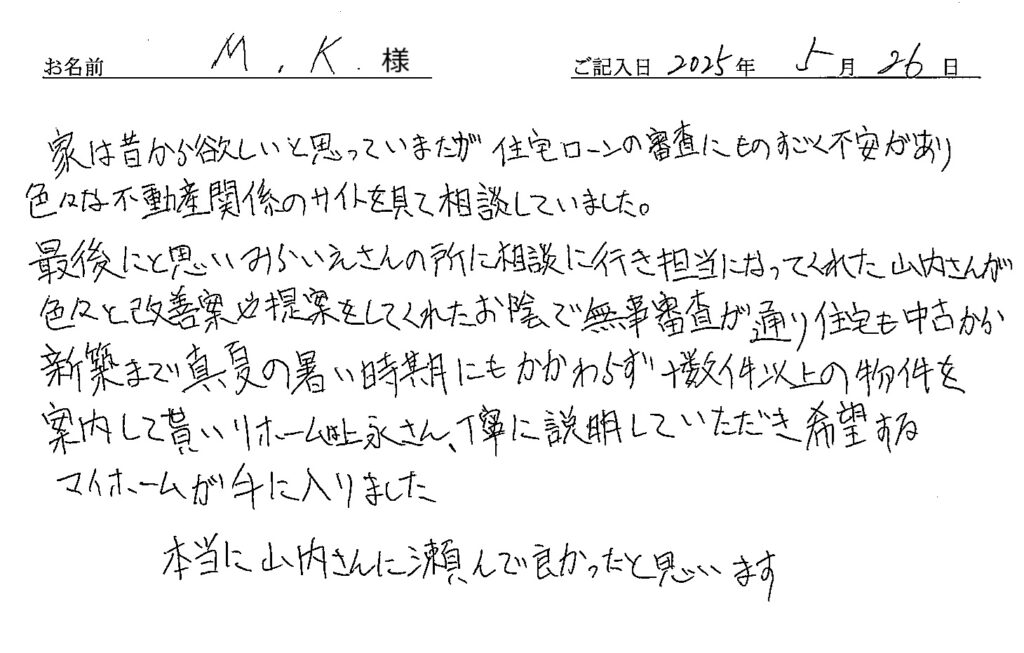 お名前 M.K.様 ご記入日 2025年 5月 26日
家は昔から欲しいと思っていまたが 住宅ローンの審査にものすごく不安があり
色々な不動産関係のサイトを見て相談していました。
最後にと思いみらいえさんの所に相談に行き担当になってくれた山内さんが
色々と改善案や提案をしてくれたお陰で無事審査が通り住宅も中古から
新築まで真夏の暑い時期にもかかわらず十数件以上の物件を
案内して貰いリホームは上永さん、丁寧に説明していただき希望する
マイホームが手に入りました
本当に山内さんに瀬んで良かったと思います